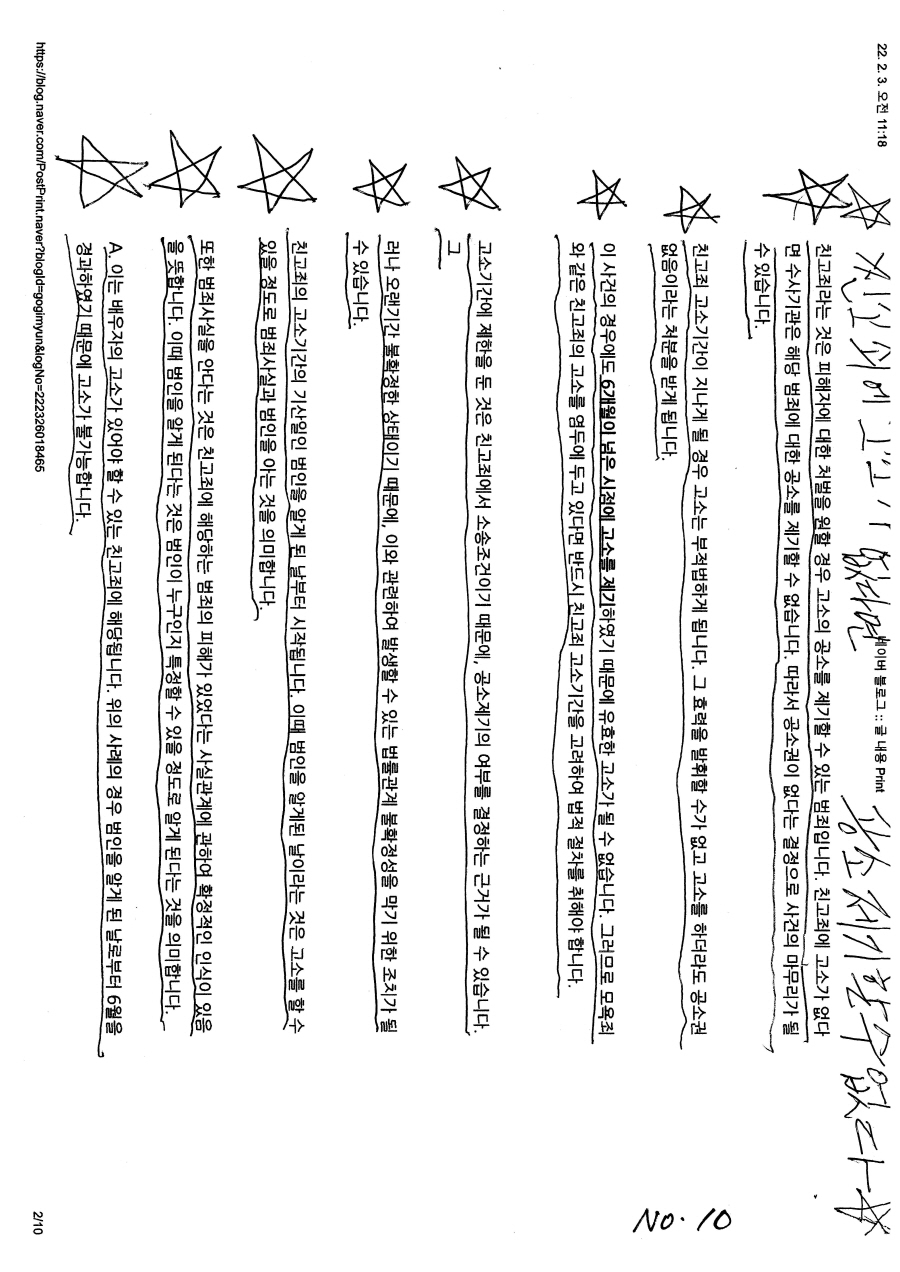 22. 2. 3. 오전 11:18
네이버 블로그 :: 글 내용 Print
친고죄에 고소가 없다면 공소제기할 수 없다
친고죄라는 것은 피해자에 대한 처벌을 원할 경우 고소의 공소를 제기할 수 있는 범죄입니다. 친고죄에 고소가 없다
면 수사기관은 해당 범죄에 대한 공소를 제기할 수 없습니다. 따라서 공소권이 없다는 결정으로 사건의 마무리가 될
수 있습니다.
친고죄 고소기간이 지나게 될 경우 고소는 부적법하게 됩니다. 그 효력을 발휘할 수가 없고 고소를 하더라도 공소권
없음이라는 처분을 받게 됩니다.
이 사건의 경우에도 6개월이 넘은 시점에 고소를 제기하였기 때문에 유효한 고소가 될 수 없습니다. 그러므로 모욕죄
와 같은 친고죄의 고소를 염두에 두고 있다면 반드시 친고죄 고소기간을 고려하여 법적 절차를 취해야 합니다.
고소기간에 제한을 둔 것은 친고죄에서 소송조건이기 때문에, 공소제기의 여부를 결정하는 근거가 될 수 있습니다.
그
러나 오랜기간 불확정한 상태이기 때문에, 이와 관련하여 발생할 수 있는 법률관계 불확정성을 막기 위한 조치가 될
수 있습니다.
친고죄의 고소기간의 기산일인 범인을 알게 된 날부터 시작됩니다. 이때 범인을 알게된 날이라는 것은 고소를 할 수
있을 정도로 범죄사실과 범인을 아는 것을 의미합니다.
또한 범죄사실을 안다는 것은 친고죄에 해당하는 범죄의 피해가 있었다는 사실관계에 관하여 확정적인 인식이 있음
을 뜻합니다. 이때 범인을 알게 된다는 것은 범인이 누구인지 특정할 수 있을 정도로 알게 된다는 것을 의미합니다.
A. 이는 배우자의 고소가 있어야 할 수 있는 친고죄에 해당됩니다. 위의 사례의 경우 범인을 알게 된 날로부터 6월을
경과하였기 때문에 고소가 불가능합니다.
NO. 10
https://blog.naver.com/PostPrint.naver?blogId=gogimyun&logNo=222326018465
2/10